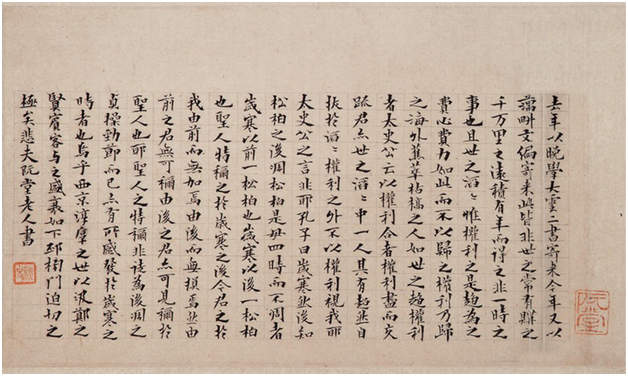 去年以晩學大雲二書寄來今年又以
藕畊文編寄來此皆非世之常有購之
千万里之遠積有年而得之非一時之
事也且世之滔〻惟權利之是趨爲之
費心費力如此而不以歸之權利乃歸
之海外蕉萃枯槁之人如世之趨權利
者太史公云以權利合者權利盡而交
疎君亦世之滔〻中一人其有超然自
拔於滔〻權利之外不以權利視我耶
太史公之言非耶孔子曰歲寒然後知
松柏之後凋松柏是毌四時而不凋者
歲寒以前一松柏也歲寒以後一松柏
也聖人特稱之於歲寒之後今君之於
我由前而無加焉由後而無損焉然由
前之君無可稱由後之君亦可見稱於
聖人也耶聖人之特稱非徒爲後凋之
貞操勁節而已亦有所感發於歲寒之
時者也烏乎西京淳厚之世以汲鄭之
賢賓客與之盛衰如下邳榜門迫切之
極矣悲夫阮堂老人書
阮堂